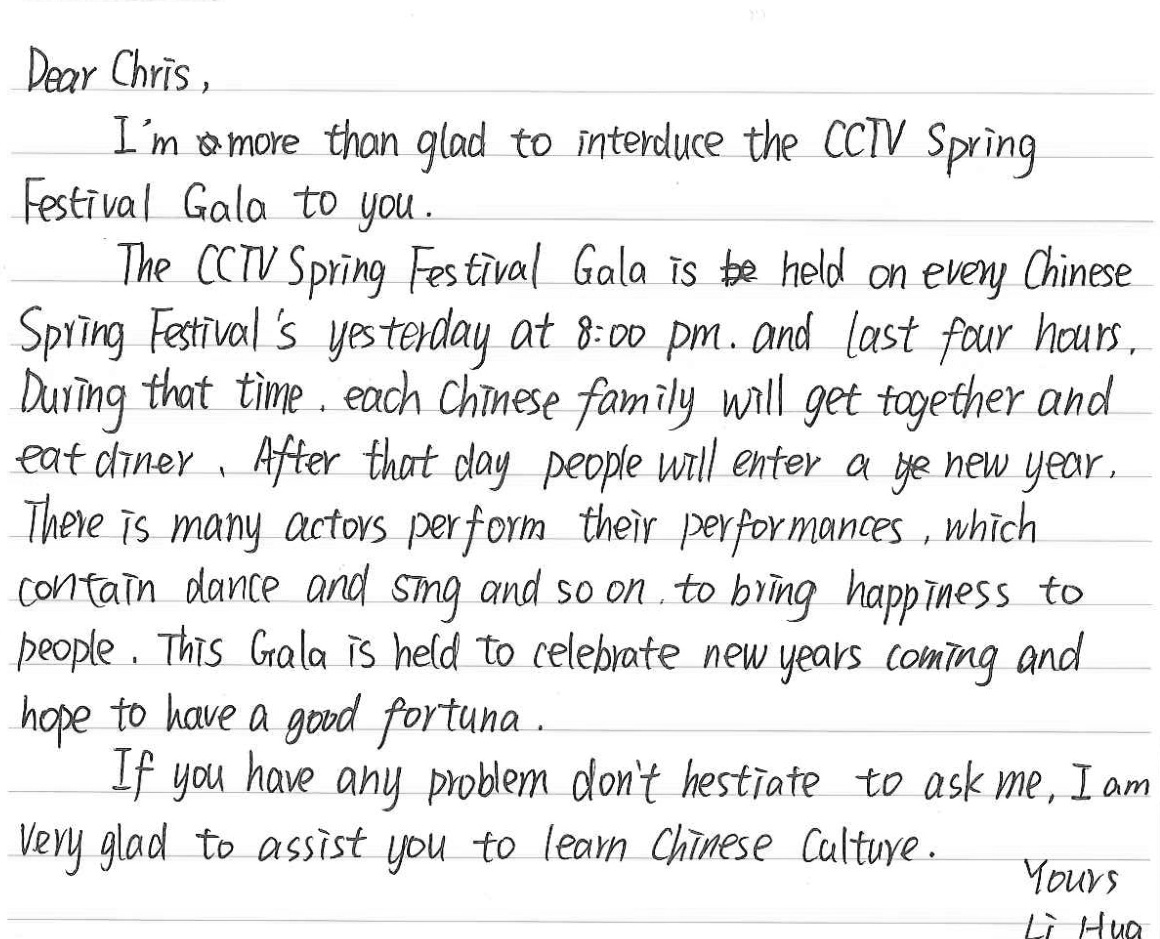 Dear Chris,
I'm more than glad to interduce the CCTV Spring
Festival Gala to you.
The CCTV Spring Festival Gala is held on every Chinese
Spring Festival's yesterday at 8:00 pm. and last four hours.
During that time. each Chinese family will get together and
eat diner. After that day people will enter a new year.
There is many actors perform their performances, which
contain dance and sing and so on. to bring happiness to
people. This Gala is held to celebrate new years coming and
hope to have a good fortuna.
If you have any problem don't hestiate to ask me, I am
very glad to assist you to learn Chinese Culture.
Yours
Li Hua